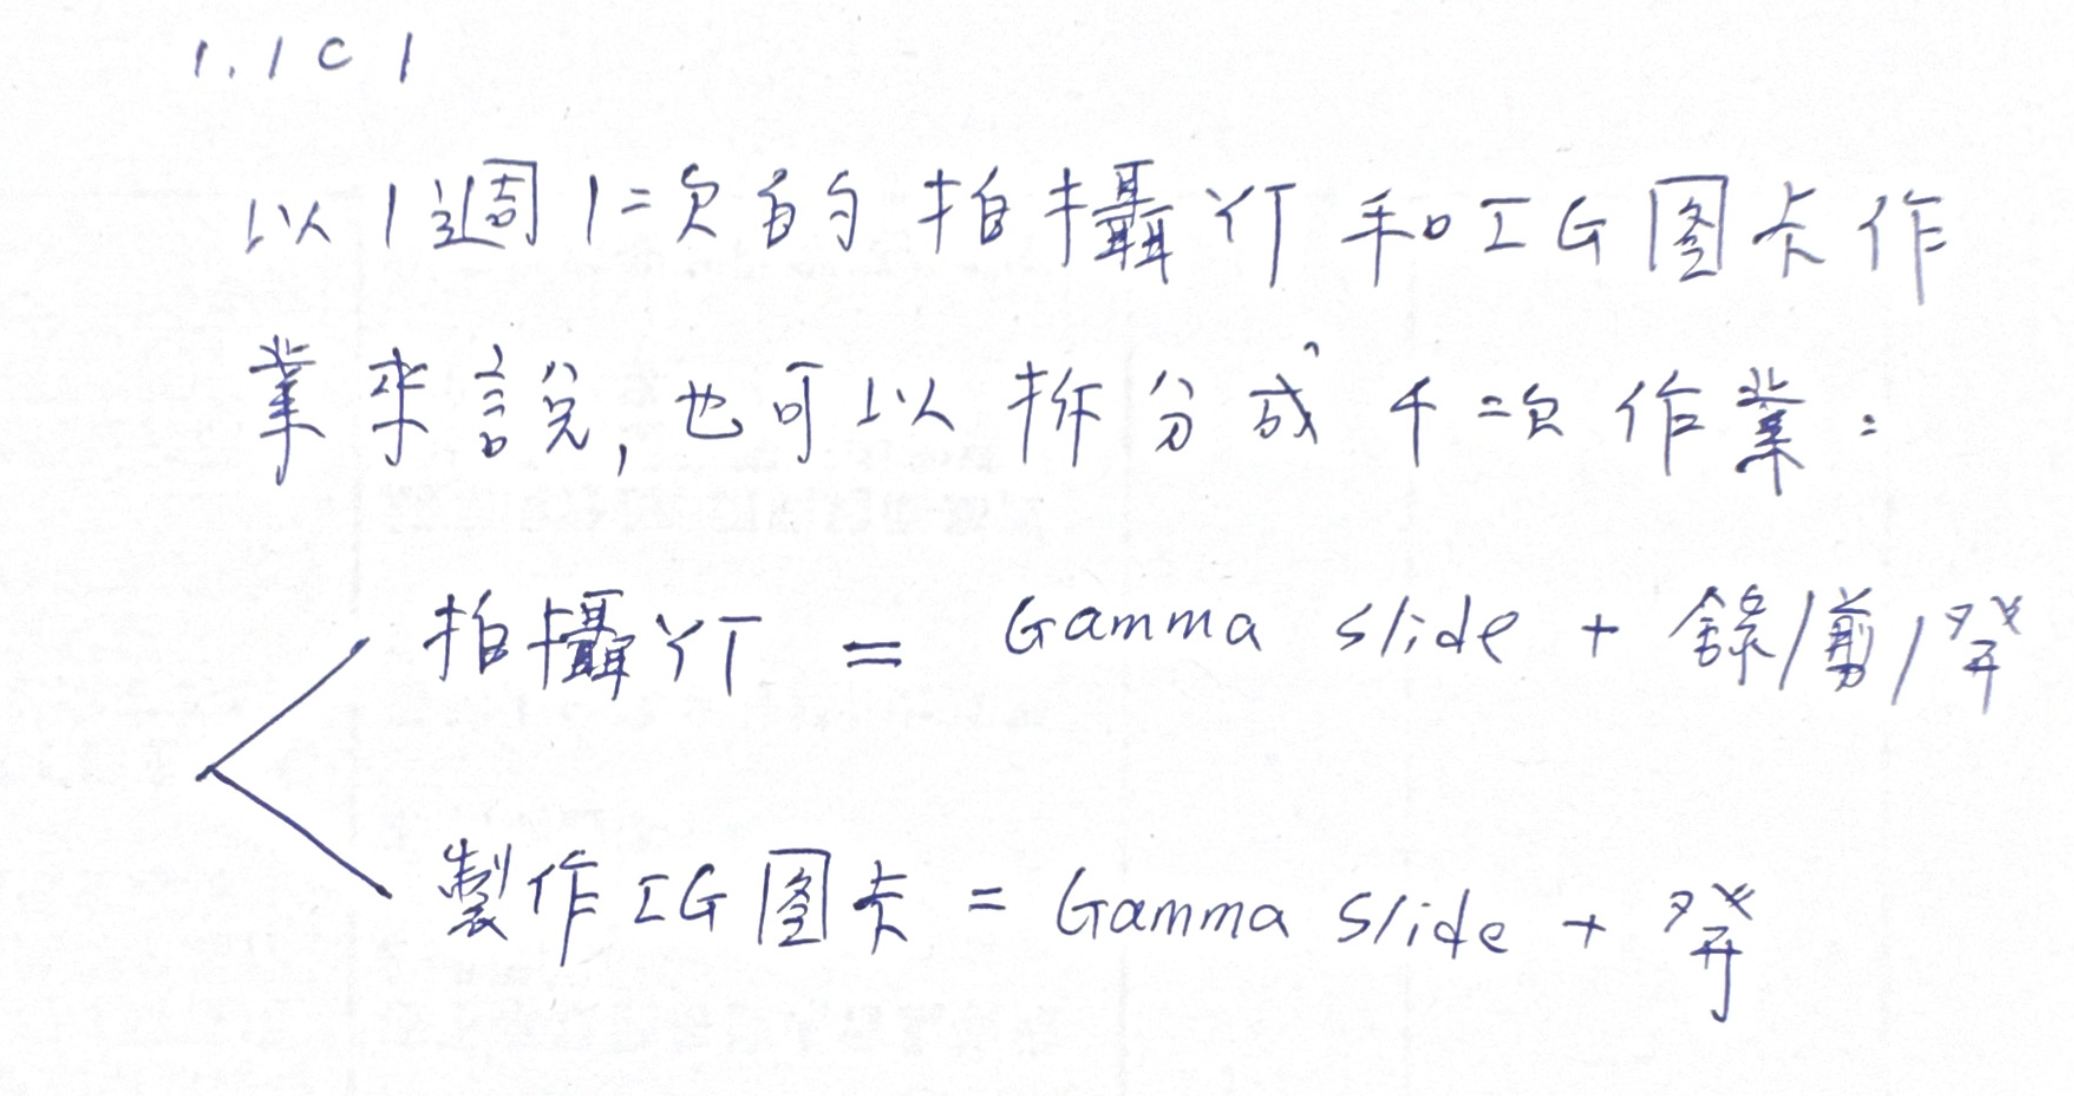 1.1C1
以1週1次的拍攝YT和IG图卡作
業來說,也可以拆分成4次作業:
拍攝YT = Gamma slide + 錄/剪/發
製作IG图卡 = Gamma Slide + 發